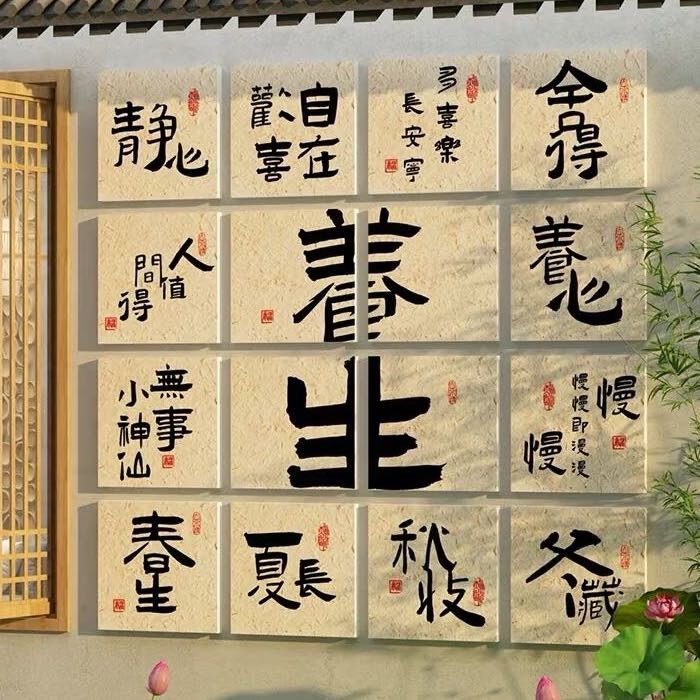 静心
自在
歡喜
多喜樂
長安寧
人間
值得
養生
養心
無事
小神仙
慢
慢慢即漫漫
慢
春生
夏長
秋收
冬藏